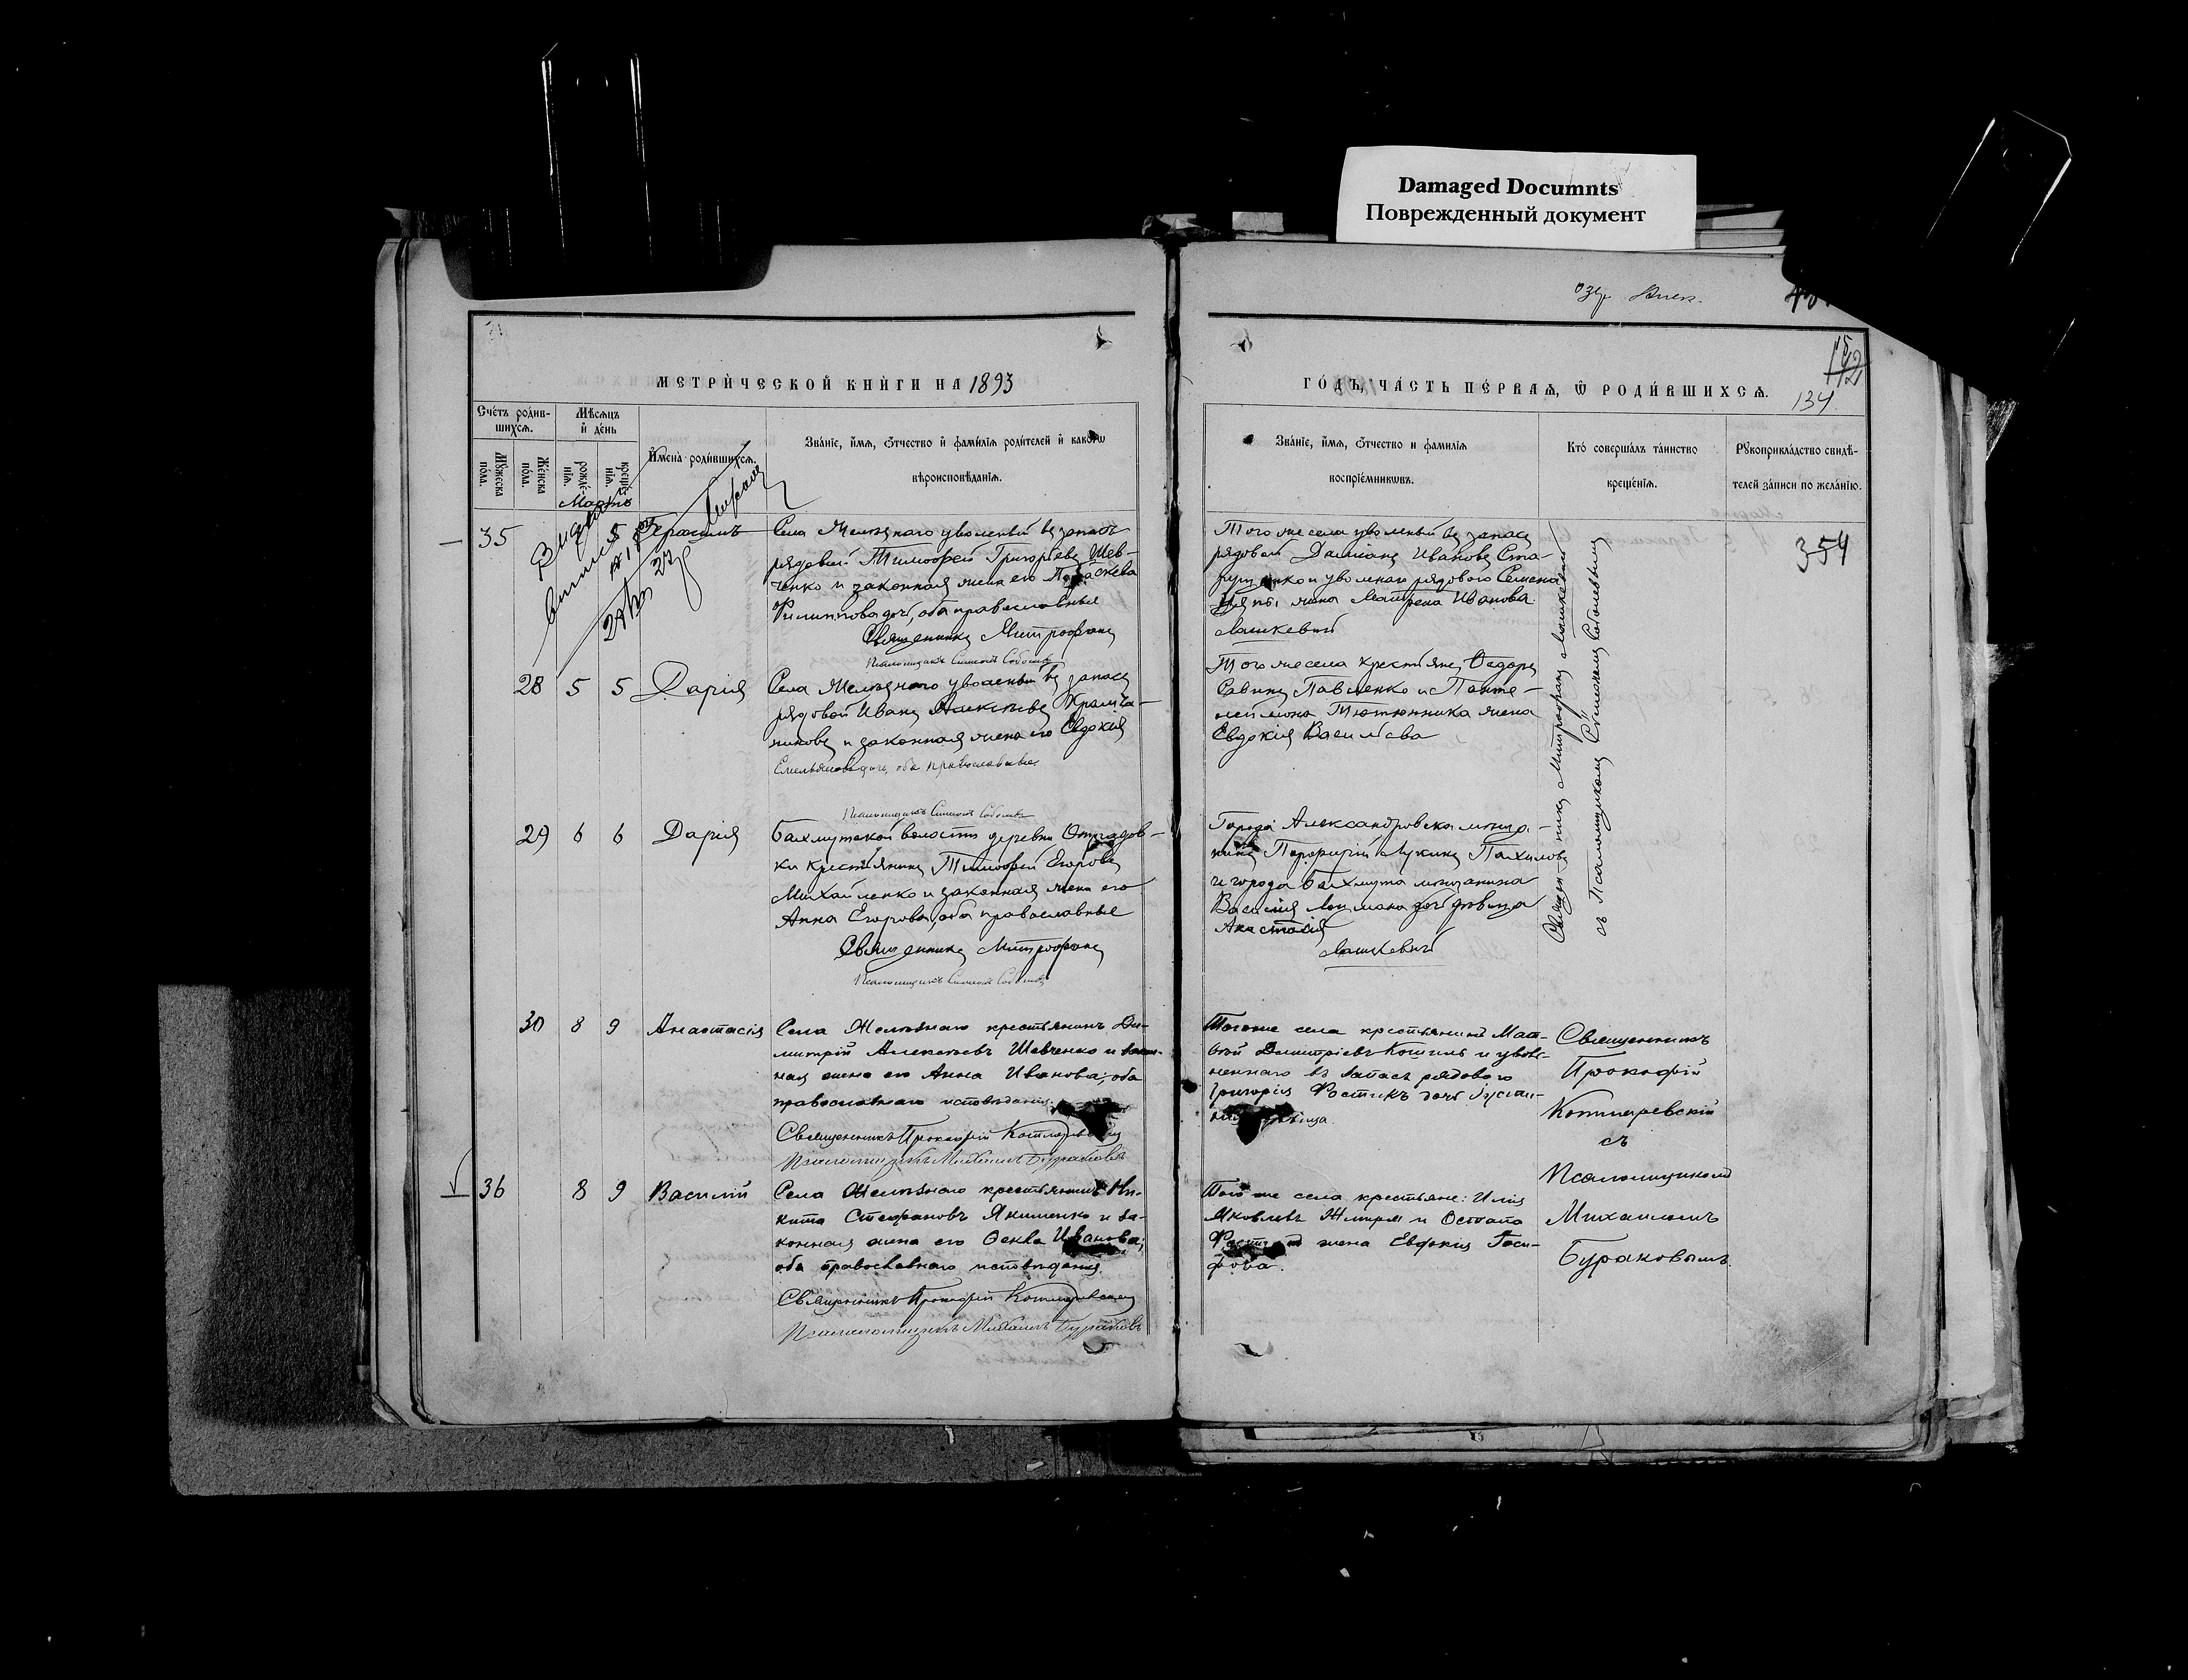 Damaged Documnts
Поврежденный документ
134
МЕТРИ́ЧЕСКОЙ КНИ́ГИ НА 1893
ГО́ДЪ, ЧА́СТЬ ПЕ́РВАѦ, Ѿ РОДИ́ВШИХСѦ.
Сче́тъ роди́в-
шихсѧ.
Мѣ́сѧцъ
и҆ де́нь
Му́жеска
по́ла.
Же́нска
по́ла.
рожде́-
нїѧ.
креще́-
нїѧ.
И҆мена̀ роди́вшихсѧ.
Зва́нїе, и҆́мѧ, ѻ҆́тчество и҆ фами́лїѧ роди́телей и҆ како́гѡ
вѣроисповѣ́данїѧ.
Зва́нїе, и҆́мѧ, ѻ҆́тчество и фами́лїѧ
воспрїе́мникѡвъ.
Кто̀ соверша́лъ та́инство
креще́нїѧ.
Рꙋкоприкла́дство свидѣ́-
телей за́писи по жела́нїю.
Мартъ
35
5
Герасимъ
Села Желѣзнаго уволеный въ запасъ
рядовой Тимофей Григорьевъ Шев-
ченко и законная жена его Параскева
Филиппова дочь, оба православные
Священникъ Митрофанъ
Псаломщикъ Симеонъ
Того же села уволеный въ запасъ
рядовой Даміанъ Ивановъ Ста-
рядового Семена
жена Матрена Иванова
Лашкевичъ
354
28 5 5 Дарія
Села Желѣзнаго уволеный въ запасъ
рядовой Иванъ Алексѣевъ
никовъ и законная жена его Евдокія
Емельянова дочь, оба православные
Псаломщикъ Симеонъ
Того же села крестьяне Ѳедоръ
Саввинъ Павленко и Панте-
леймона Тютюнника жена
Евдокія Васильева
Священникъ Митрофанъ Лашкевичъ
съ Псаломщикомъ Симеономъ
29 6 6 Дарія
Бахмутской волости деревни Отрадов-
ки крестьянинъ Тимофей Егоровъ
Михайленко и законная жена его
Анна Егорова, оба православные
Священникъ Митрофанъ
Псаломщикъ Симеонъ
Города Александровска мѣща-
нинъ Порфирій Лукинъ
и города Бахмута мѣщанина
Василія дочь дѣвица
Анастасія
Лашкевичъ
30 8 9 Анастасія
Села Желѣзнаго крестьянинъ Ди-
митрій Алексѣевъ Шевченко и закон-
ная жена его Анна Иванова; оба
православнаго исповѣданія.
Священникъ Прокофій Котляревскій
Псаломщикъ Михаилъ Бураковъ
Того же села крестьянинъ Мат-
ѳей Димитріевъ Кошиль и уволь-
неннаго въ запасъ рядового
Григорія Фостикъ дочь
Священникъ
Прокофій
Котляревскій
съ
Псаломщикомъ
Михаиломъ
Бураковымъ.
36 8 9 Василій
Села Желѣзнаго крестьянинъ Ни-
кита Стефановъ Якименко и за-
конная жена его Ѳекла Иванова;
оба православнаго исповѣданія.
Священникъ Прокофій Котляревскій
Псаломщикъ Михаилъ Бураковъ
Того же села крестьяне: Илія
Яковлевъ и
жена Евфокія Іоси-
фова.